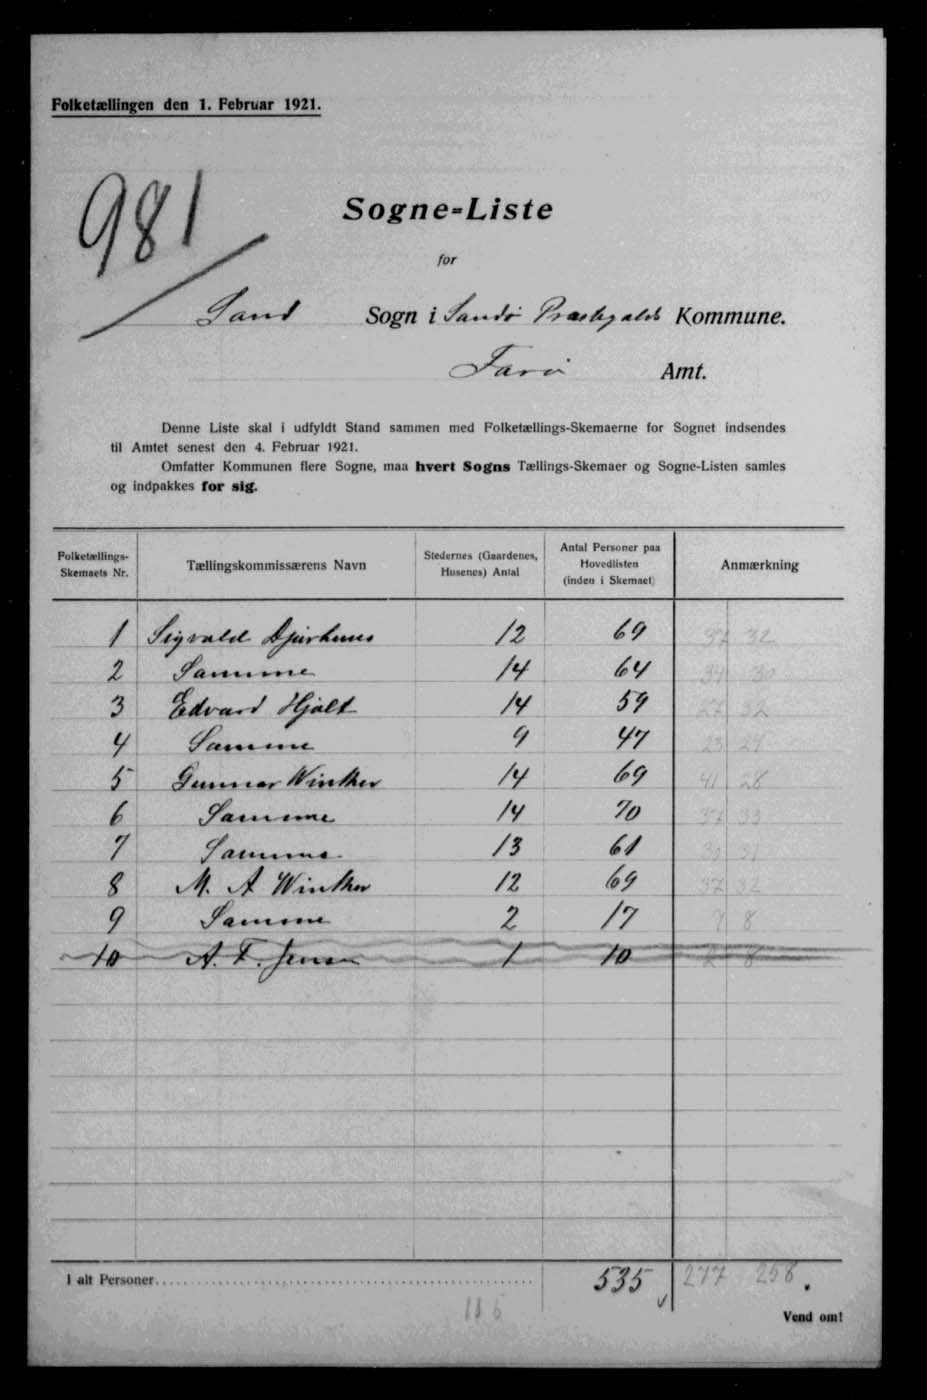 Folketællingen den 1. Februar 1921.
981
Sogne-Liste
for
Sand Sogn i Sandø Præstegjalds Kommune.
Færø Amt.
Denne Liste skal i udfyldt Stand sammen med Folketællings-Skemaerne for Sognet indsendes
til Amtet senest den 4. Februar 1921.
Omfatter Kommunen flere Sogne, maa hvert Sogns Tællings-Skemaer og Sogne-Listen samles
og indpakkes for sig.
Folketællings-Skemaets Nr. Tællingskommissærens Navn Stedernes (Gaardenes, Husenes) Antal Antal Personer paa Hovedlisten (inden i Skemaet) Anmærkning
1 Sigvald Djurhuus 12 69 37 32
2 Samme 14 64 34 30
3 Edvard Hjalt 14 59 27 32
4 Samme 9 47 23 24
5 Gunnar Winther 14 69 41 28
6 Samme 14 70 37 33
7 Samme 13 61 30 31
8 M. A Winther 12 69 37 32
9 Samme 2 17 9 8
10 A. F. Jensen 1 10 2 8
I alt Personer 535 277 258
Vend om!